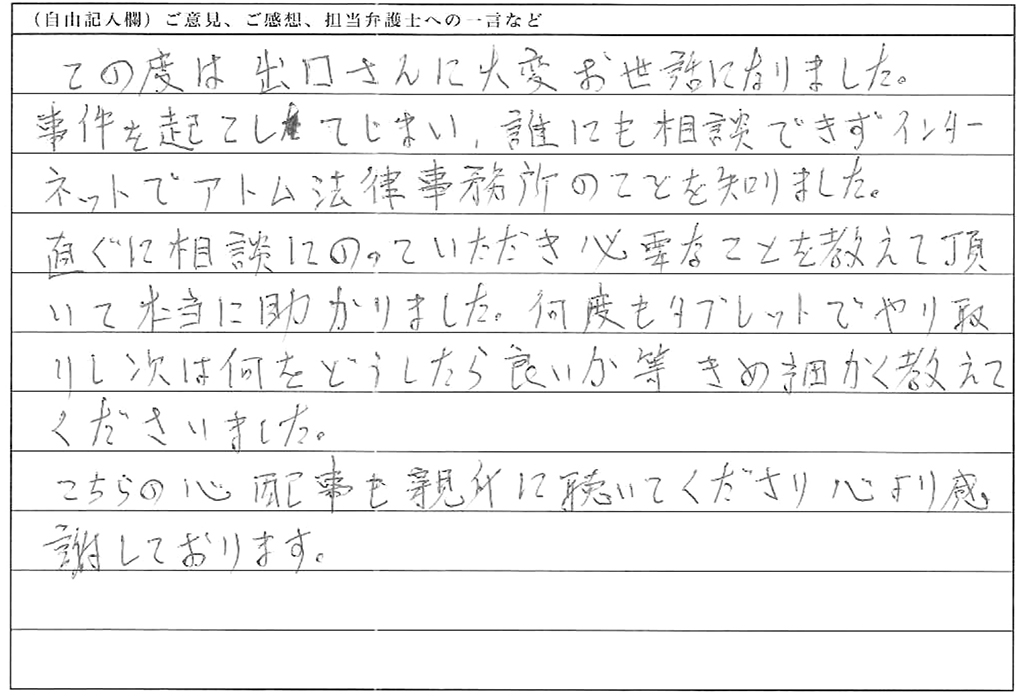 （自由記入欄）ご意見、ご感想、担当弁護士への一言など
この度は出口さんに大変お世話になりました。
事件を起こしてしまい、誰にも相談できずインター
ネットでアトム法律事務所のことを知りました。
直ぐに相談にのっていただき必要なことを教えて頂
いて本当に助かりました。何度もタブレットでやり取
りし次は何をどうしたら良いか等きめ細かく教えて
くださいました。
こちらの心配事も親身に聴いてくださり心より感
謝しております。